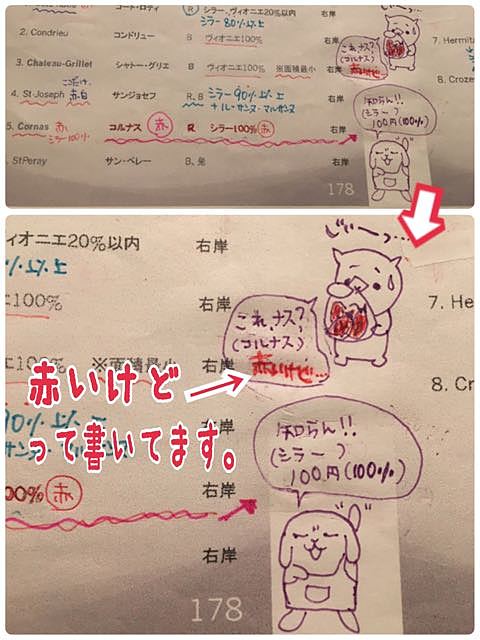 コート・ロティ
R シラー、ヴィオニエ20%以内
右岸
シラー80%以上
2. Condrieu コンドリュー B ヴィオニエ100% 右岸
3. Chateau-Grillet シャトー・グリエ B ヴィオニエ100% ※面積最小 右岸
ここだけ、
4. St Joseph 赤白 サンジョセフ R, B シラー90%以上 右岸
ナルーサンヌ・マルサンヌ
5. Cornas 赤 コルナス 赤 R シラー100% 赤 右岸
シラー100%
StPeray サン・ペレー B、発 右岸
178
じーっ…
これ、ナス?
(コルナス)
赤いけど…
知らん!!
(シラー)
100円(100%)
7. Hermita
8. Croze
ヴィオニエ20%以内 右岸
%以上
エ100% 右岸
エ100% ※面積最小 右岸
90%以上 右岸
サンヌ・マル
00% 赤 右岸
右岸
178
じーっ…
これ、ナス?
(コルナス)
赤いけど…
知らん!!
(シラー)
100円(100%)
7. He
8. Cr
赤いけど
って書いてます。